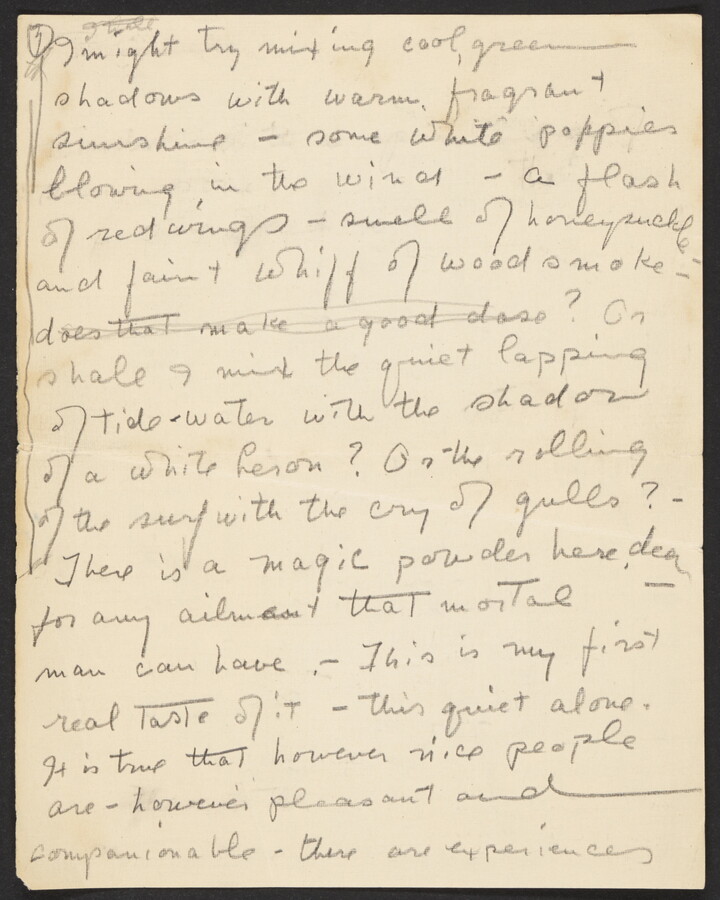 I might try mixing cool, green
shadows with warm, fragrant
sunshine - some white poppies
blowing in the wind - a flash
of red wings - smell of honeysuckle -
and faint whiff of wood smoke -
does that make a good dose? Or
shall I mix the quiet lapping
of tide-water with the shadow
of a white heron? Or the rolling
of the surf with the cry of gulls? -
There is a magic powder here, dear
for any ailment that mortal
man can have. - This is my first
real taste of it - this quiet alone.
It is true that however nice people
are - however pleasant and
companionable - there are experiences